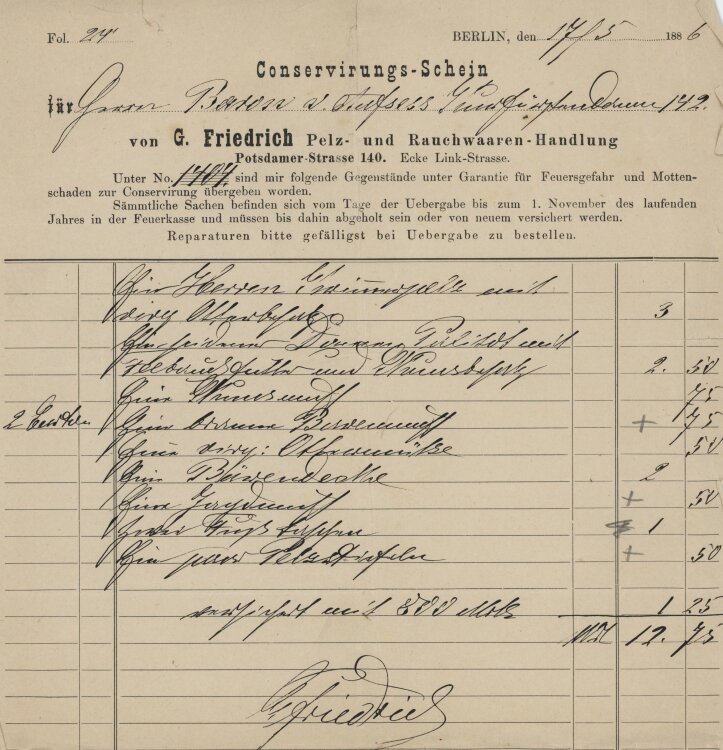 Fol. 24 BERLIN, den 17/5 1886
Conservirungs-Schein
für Herrn Baron v. Aufsess Kurfürstendamm 142.
von G. Friedrich Pelz- und Rauchwaaren-Handlung
Potsdamer-Strasse 140. Ecke Link-Strasse.
Unter No. 1404 sind mir folgende Gegenstände unter Garantie für Feuersgefahr und Motten-
schaden zur Conservirung übergeben worden.
Sämmtliche Sachen befinden sich vom Tage der Uebergabe bis zum 1. November des laufenden
Jahres in der Feuerkasse und müssen bis dahin abgeholt sein oder von neuem versichert werden.
Reparaturen bitte gefälligst bei Uebergabe zu bestellen.
Ein Herren mit
virg Otterbesatz 3
Damen Paletot mit
futter und Nerzbesatz 2. 50
Eine 75
Eine braune Bärenmuff + 75
Eine virg: Ottermütze 50
Eine Bärendecke 2
Eine Jagdmuff + 50
zwei Fußtaschen 1
Ein paar Pelzstiefeln + 50
versichert mit 800 Mrk 1 25
Mk 12. 75
G Friedrich